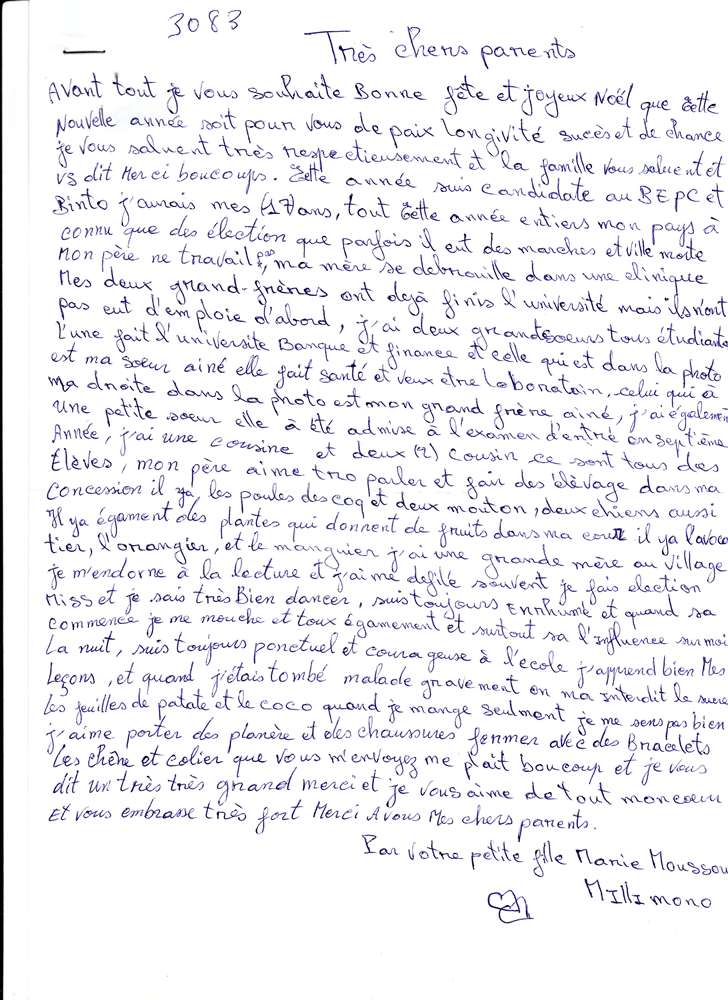 3083
Très chers parents
Avant tout je vous souhaite Bonne fête et joyeux Noël que cette
Nouvelle année soit pour vous de paix longivité sucès et de chance
je vous saluent très respectieusement et la famille vous saluent ét
vs dit Merci boucoups. Cette année suis candidate au BEPC et
Binto j'aurais mes (17) ans, tout cette année entiers mon pays à
connu que des élection que parfois il eut des marches et ville morte
Mon père ne travail pas, ma mère se debrouille dans une clinique
Mes deux grand-frères ont dejà finis l'université mais ils n'ont
pas eut d'emploie d'abord, j'ai deux grandsoeurs tous étudiante
L'une fait l'universite Banque et finance et celle qui est dans la photo
est ma soeur ainé elle fait santé et veux etre laboratoin, celui qui à
ma droite dans la photo est mon grand frère ainé, j'ai égalemen
Une petite soeur elle à été admise à l'examen d'entré en septième
Année, j'ai une cousine et deux (2) cousin ce sont tous des
élèves, mon père aime tro parler et fair des élèvage dans ma
concession il ya les poules des coq et deux mouton, deux chiens aussi
Il ya égament des plantes qui donnent de fruits dans ma cour il ya l'avoca
tier, l'orangier, et le manguier j'ai une grande mère au village
je m'endorne à la lecture et j'aime defile souvent je fais election
Miss et je sais très Bien dancer, suis toujours Enrhumé et quand sa
commence je me mouche et toux égamement et surtout sa l'influence sur moi
La nuit, suis toujours ponctuel et courageuse à l'ecole j'apprend bien Mes
Leçons, et quand j'étais tombé malade gravement on ma interdit le sucre
Les feuilles de patate et le coco quand je mange seulment je me sens pas bien
j'aime porter des planère et des chaussures fermer avec des Bracelets
Les chêne et colier que vous m'envoyez me plait boucoup et je vous
dit un très très grand merci et je vous aime de tout mon coeur
Et vous embrasse très fort Merci A vous Mes chers parents.
Par votre petite fille Marie Moussou
Millimono